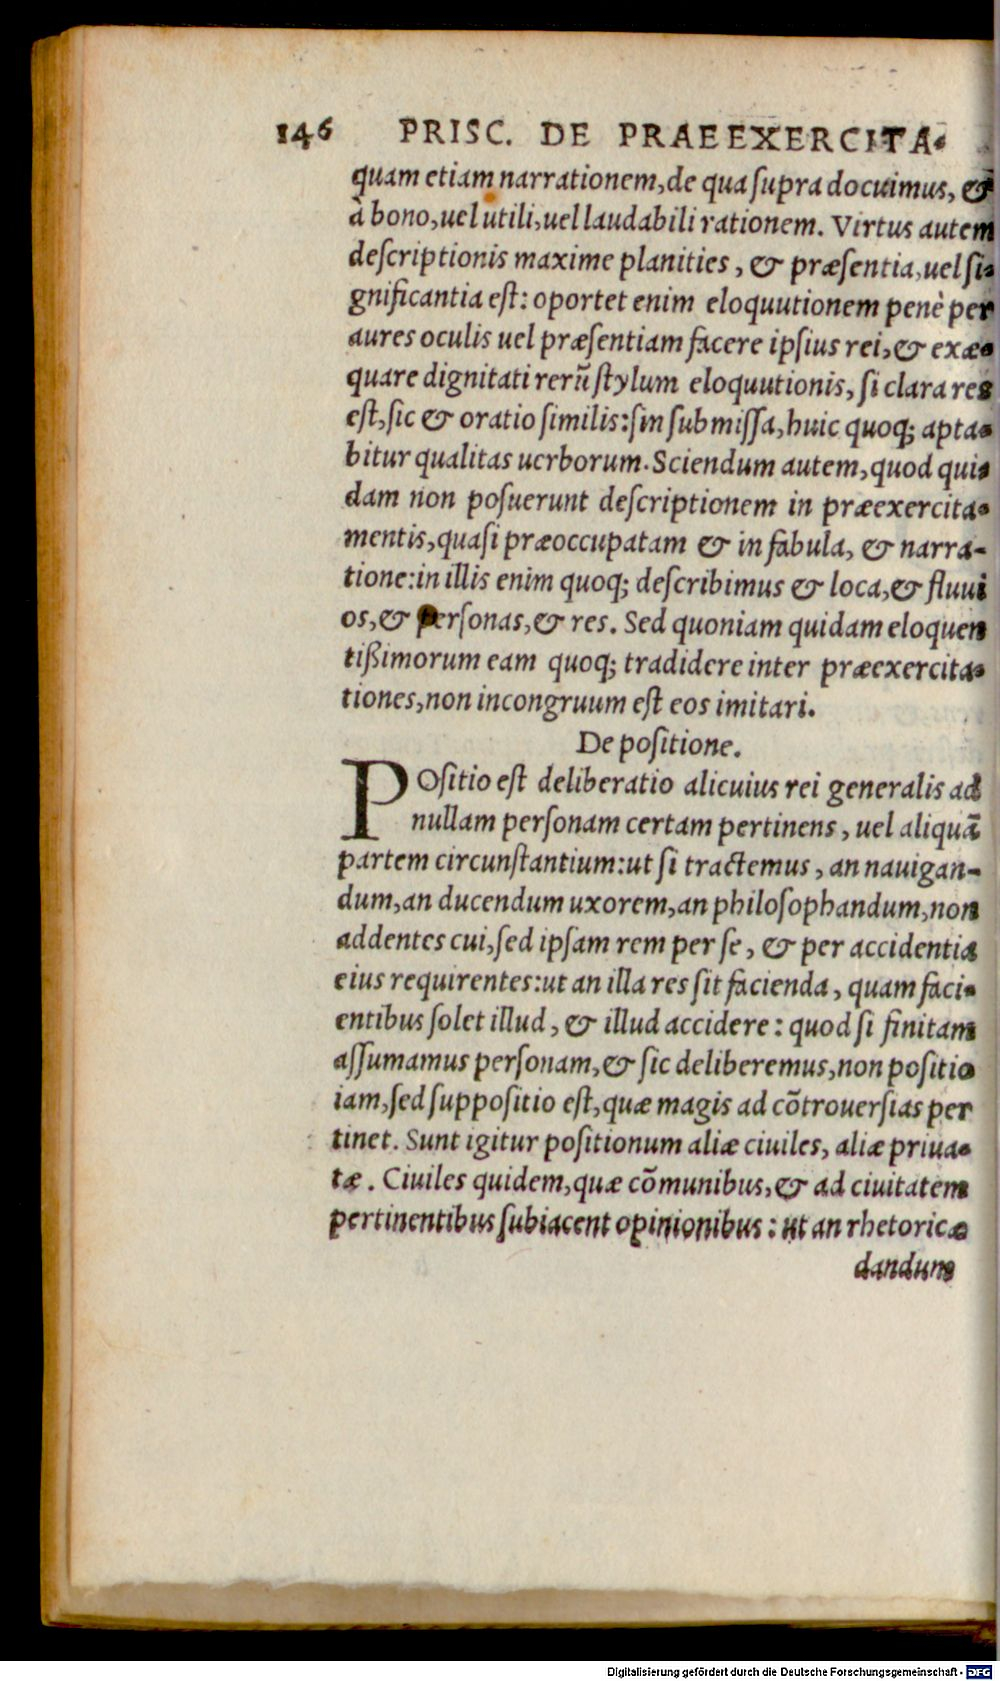 146 PRISC. DE PRAEEXERCITA-
quam etiam narrationem, de qua supra docuimus, &
à bono, uel utili, uel laudabili rationem. Virtus autem
descriptionis maxime planities, & præsentia, uel si-
gnificantia est: oportet enim eloquutionem penè per
aures oculis uel præsentiam facere ipsius rei, & exæ-
quare dignitati rerũ stylum eloquutionis, si clara res
est, sic & oratio similis: sin submissa, huic quoq; apta-
bitur qualitas uerborum. Sciendum autem, quod qui-
dam non posuerunt descriptionem in præexercita-
mentis, quasi præoccupatam & in fabula, & narra-
tione: in illis enim quoq; describimus & loca, & fluui
os, & personas, & res. Sed quoniam quidam eloquen
tißimorum eam quoq; tradidere inter præexercita-
tiones, non incongruum est eos imitari.
De positione.
POsitio est deliberatio alicuius rei generalis ad
nullam personam certam pertinens, uel aliquã
partem circunstantium: ut si tractemus, an nauigan-
dum, an ducendum uxorem, an philosophandum, non
addentes cui, sed ipsam rem per se, & per accidentia
eius requirentes: ut an illa res sit facienda, quam faci-
entibus solet illud, & illud accidere: quod si finitam
assumamus personam, & sic deliberemus, non positio
iam, sed suppositio est, quæ magis ad cõtrouersias per
tinet. Sunt igitur positionum aliæ ciuiles, aliæ priua-
tæ. Ciuiles quidem, quæ cõmunibus, & ad ciuitatem
pertinentibus subiacent opinionibus: ut an rhetoricæ
dandum
Digitalisierung gefördert durch die Deutsche Forschungsgemeinschaft - DFG